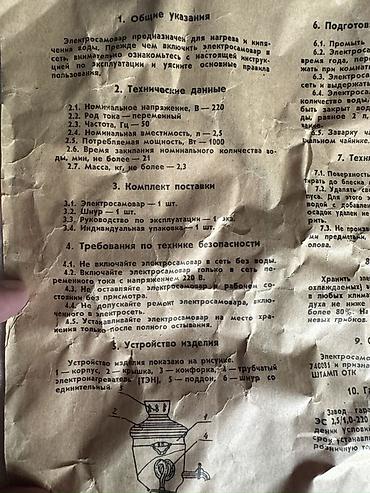 1. Общие указания
Электросамовар предназначен для нагрева и кипя-
чения воды. Прежде чем включить электросамовар в
сеть, внимательно ознакомьтесь с настоящей инструк-
цией по эксплуатации и уясните основные правила
пользования.
2. Технические данные
2.1. Номинальное напряжение, В — 220
2.2. Род тока — переменный
2.3. Частота, Гц — 50
2.4. Номинальная вместимость, л — 2,5
2.5. Потребляемая мощность, Вт — 1000
2.6. Время закипания номинального количества во-
ды, мин, не более — 21
2.7. Масса, кг, не более — 2,3
3. Комплект поставки
3.1. Электросамовар — 1 шт.
3.2. Шнур — 1 шт.
3.3. Руководство по эксплуатации — 1 экз.
3.4. Индивидуальная упаковка — 1 шт.
4. Требования по технике безопасности
4.1. Не включайте электросамовар в сеть без воды.
4.2. Включайте электросамовар только в сеть пе-
ременного тока с напряжением 220 В.
4.3. Не оставляйте электросамовар в рабочем со-
стоянии без присмотра.
4.4. Не допускайте ремонт электросамовара, вклю-
ченного в электросеть.
4.5. Устанавливайте электросамовар на место хра-
нения только после полного остывания.
5. Устройство изделия
Устройство изделия показано на рисунке.
1 — корпус, 2 — крышка, 3 — конфорка, 4 — трубчатый
электронагреватель (ТЭН), 5 — поддон, 6 — шнур со
единительный.
3
2
1
4
6. Подготов
6.1. Промыть
6.2. Электросам
время года, пере
жать при комнатн
6.3. Электросам
сеть и выдержат
6.4. Электросам
количество воды,
быть закрыт вод
ды, равное 2 л,
6.5. Заварку ча
альном чайнике.
7. Техни
7.1. Поверхность
тирать до блеска
7.2. Удалять св
пуса. Для этого з
водой с добавлен
осадок удален не
рить.
7.3. Не произв
ми предметами,
олова.
8
Хранить за
охлаждаемых) и
в любых клима
духа не ниже
более 80%. На
невых грибков.
9. С
Электросамо
740ЗВ1 и признан
ШТАМП ОТК
10. Га
Завод гара
ЭС 2,5/1,0-220
дении условий
срок устанавл
розничную тор